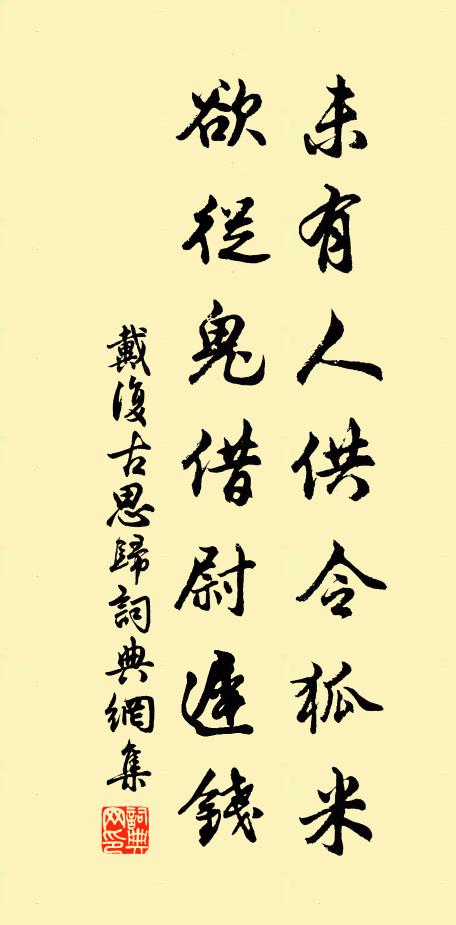 未有人供令狐米
欲從鬼借尉遲錢
戴復古思歸詞典網集
詞典網印